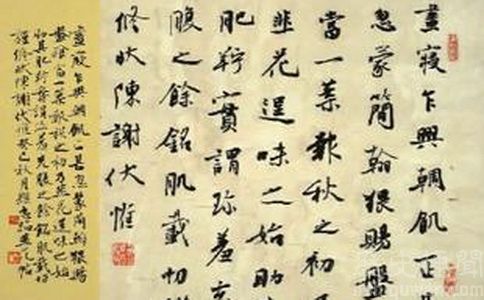 晝寢乍興朝飢正
忽蒙簡翰猥賜盤
當一葉報秋之初
韭花逞味之始助
肥羜實謂珍羞充
腹之餘銘肌載切
修狀陳謝伏惟
晝寢乍興朝飢正甚忽蒙簡翰猥賜
盤飧當一葉報秋之初乃韭花逞味之始
助其肥羜實謂珍羞充腹之餘銘肌載切
謹修狀陳謝伏惟癸巳秋月